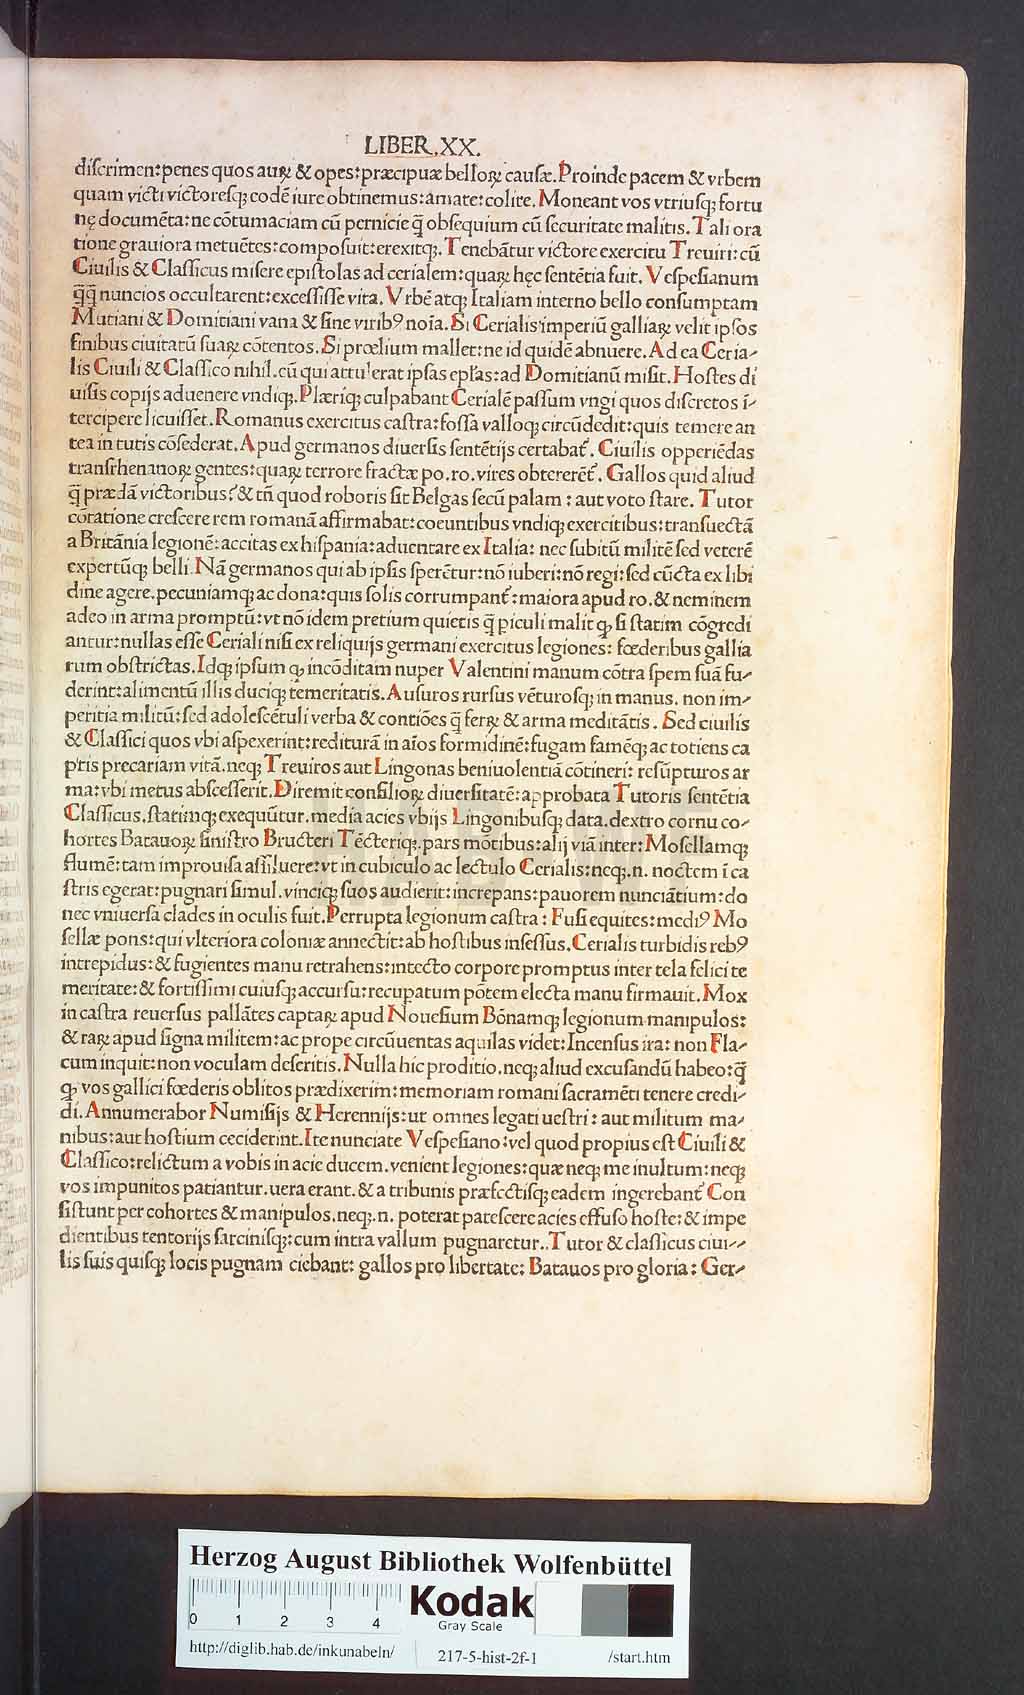 LIBER.XX.
discrimen:penes quos auꝝ & opes:præcipuæ belloꝝ causæ.Proinde pacem & vrbem
quam victi victoresqꝫ codē iure obtinemus:amate:colite. Moneant vos vtriusqꝫ fortu
nę documēta:ne cōtumaciam cū pernicie q̄ obsequium cū securitate malitis. Tali ora
tione grauiora metuētes:composuit:erexitqꝫ. Tenebātur victore exercitu Treuiri:cū
Ciuilis & Classicus misere epistolas ad cerialem:quaꝝ hęc sentētia fuit. Vespesianum
q̄q̄ nuncios occultarent:excessisse vita. Vrbē atqꝫ Italiam interno bello consumptam
Mutiani & Domitiani vana & sine viribꝰ noīa. Si Cerialis imperiū galliaꝝ velit ipsos
finibus ciuitatū suaꝝ cōtentos. Si prœlium mallet:ne id quidē abnuere. Ad ea Ceria-
lis Ciuili & Classico nihil. cū qui attulerat ipsas epl̄as:ad Domitianū misit. Hostes di
uisis copijs aduenere vndiqꝫ. Plæriqꝫ culpabant Cerialē passum vngi quos discretos ī-
tercipere licuisset. Romanus exercitus castra:fossa valloqꝫ circūdedit:quis temere an
tea in tutis cōsederat. Apud germanos diuersis sentētijs certabat᷑. Ciuilis opperiēdas
transrhenanoꝝ gentes:quaꝝ terrore fractæ po.ro.vires obtererēt᷑. Gallos quid aliud
q̄ prædā victoribus? & tn̄ quod roboris sit Belgas secū palam : aut voto stare. Tutor
cōtatione crescere rem romanā affirmabat:coeuntibus vndiqꝫ exercitibus:transuectā
a Britānia legionē:accitas ex hispania:aduentare ex Italia: nec subitū militē sed veterē
expertūqꝫ belli. Nā germanos qui ab ipsis sperētur:nō iuberi:nō regi:sed cūcta ex libi
dine agere.pecuniamqꝫ ac dona:quis solis corrumpant᷑:maiora apud ro. & neminem
adeo in arma promptū:vt nō idem pretium quietis q̄ ꝑiculi malit ꝙ si statim cōgredi
antur:nullas esse Ceriali nisi ex reliquijs germani exercitus legiones: fœderibus gallia
rum obstrictas. Idqꝫ ipsum ꝙ incōditam nuper Valentini manum cōtra spem suā fu-
derint:alimentū illis duciqꝫ temeritatis. Ausuros rursus vēturosqꝫ in manus. non im-
peritia militū:sed adolescētuli verba & contiōes q̄ ferꝝ & arma meditātis. Sed ciuilis
& Classici quos vbi aspexerint:rediturā in aīos formidinē:fugam famēqꝫ ac totiens ca
ptis precariam vitā.neqꝫ Treuiros aut Lingonas beniuolentiā cōtineri: resūpturos ar
ma:vbi metus abscesserit. Diremit consilioꝝ diuersitatē:approbata Tutoris sentētia
Classicus.statimqꝫ exequūtur.media acies vbijs Lingonibusqꝫ data.dextro cornu co-
hortes Batauoꝝ sinistro Bructeri Tēcteriqꝫ.pars mōtibus:alij viā inter: Mosellamqꝫ
flumē:tam improuisa assiluere:vt in cubiculo ac lectulo Cerialis:neqꝫ.n. noctem ī ca
stris egerat:pugnari simul.vinciqꝫ suos audierit:increpans:pauorem nunciātium:do
nec vniuersa clades in oculis fuit. Perrupta legionum castra: Fusi equites:mediꝰ Mo
sellæ pons:qui vlteriora coloniæ annectit:ab hostibus insessus. Cerialis turbidis rebꝰ
intrepidus:& fugientes manu retrahens:intecto corpore promptus inter tela felici te
meritate:& fortissimi cuiusqꝫ accursu:recuꝑatum pōtem electa manu firmauit. Mox
in castra reuersus pallātes captaꝝ apud Nouesium Bōnamqꝫ legionum manipulos:
& raꝝ apud signa militem:ac prope circūuentas aquilas videt:Incensus ira: non Fla-
cum inquit:non voculam deseritis. Nulla hic proditio.neqꝫ aliud excusandū habeo:q̄
ꝙ vos gallici fœderis oblitos prædixerim:memoriam romani sacramēti tenere credi-
di. Annumerabor Numisijs & Herennijs:ut omnes legati uestri: aut militum ma-
nibus:aut hostium ceciderint. Ite nunciate Vespesiano:vel quod propius est Ciuili &
Classico:relictum a vobis in acie ducem.venient legiones:quæ neqꝫ me inultum:neqꝫ
vos impunitos patiantur.uera erant. & a tribunis præfectisqꝫ eadem ingerebant᷑ Con
sistunt per cohortes & manipulos.neqꝫ.n. poterat patescere acies effuso hoste: & impe
dientibus tentorijs sarcinisqꝫ:cum intra vallum pugnaretur.. Tutor & classicus ciui--
lis suis quisqꝫ locis pugnam ciebant: gallos pro libertate: Batauos pro gloria: Ger-
Herzog August Bibliothek Wolfenbüttel
0 1 2 3 4
Kodak
Gray Scale
http://diglib.hab.de/inkunabeln/ 217-5-hist-2f-1 /start.htm